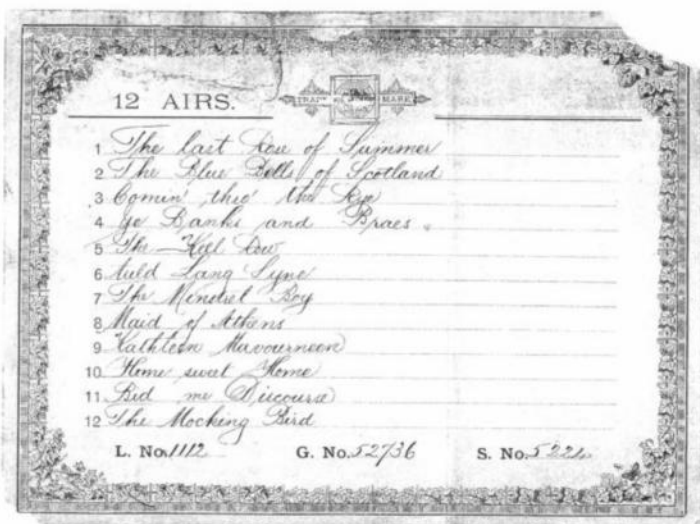 12 AIRS.
TRADE MARK
1 The last Rose of Summer
2 The Blue Bells of Scotland
3 Comin' thro' the Rye
4 Ye Banks and Braes.
5 The Keel Row
6 Auld Lang Syne
7 The Minstrel Boy
8 Maid of Athens
9 Kathleen Mavourneen
10 Home sweet Home
11 Bid me Discourse
12 The Mocking Bird
L. No. 1112 G. No. 52736 S. No.